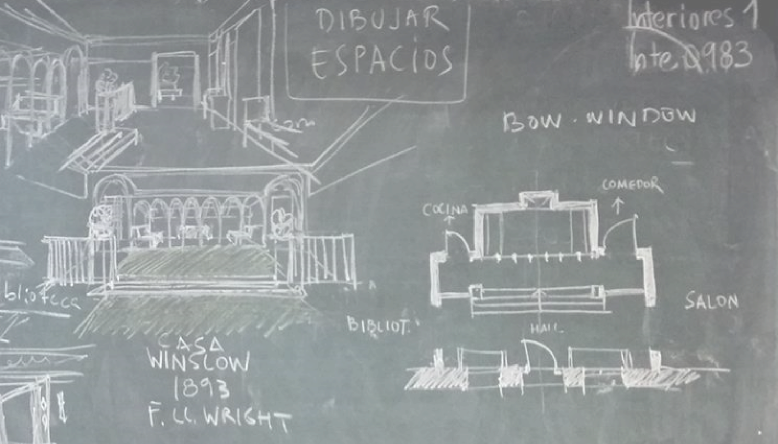 DIBUJAR
ESPACIOS
Interiores 1
BOW-WINDOW
COCINA
COMEDOR
SALON
BIBLIOT.
HALL
CASA
WINSLOW
1893
F. LL. WRIGHT